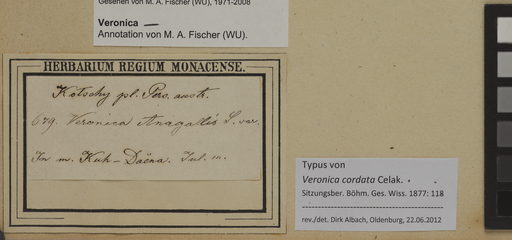 Gesehen von M. A. Fischer (WU), 1971-2008
Veronica —
Annotation von M. A. Fischer (WU).
HERBARIUM REGIUM MONACENSE.
Kotschy pl. Pers. austr.
679. Veronica Anagallis L. var.
In m. Kuh-Daëna. Jul. m.
Typus von
Veronica cordata Celak.
Sitzungsber. Böhm. Ges. Wiss. 1877: 118
rev./det. Dirk Albach, Oldenburg, 22.06.2012